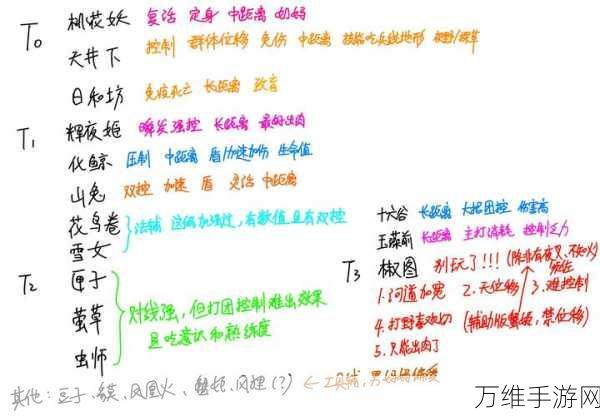 T0 桃花妖 复活 定身 中距离 奶妈
天井下 控制 群体位移 免伤 中距离 技能吃兵线地形
日和坊 免疫死亡 长距离 致盲
T1 辉夜姬 瞬发强控 长距离 最好出肉
化鲸 压制 中距离 盾/加速加伤 生命值
山兔 双控 加速 盾 灵活 中距离
花鸟卷
雪女
法辅 这俩加强过,有数值且有双控
T2 匣子
萤草
虫师
对线强,但打团控制难出效果
且吃意识和熟练度
十六谷 长距离 大招团控 伤害高
玉藻前 长距离 主打消耗 控制乏力
T3 椒图 别玩了!!! (除非有夜叉、不知火)
1.河道加宽 2.无位移 3.难控制
4.打野喜欢切 (辅助版蟹姬,禁位移)
5.只能出肉了
其他:豆子、貘、凤凰火、蟹姬、风狸(?) ← 工具辅,
万维手游网